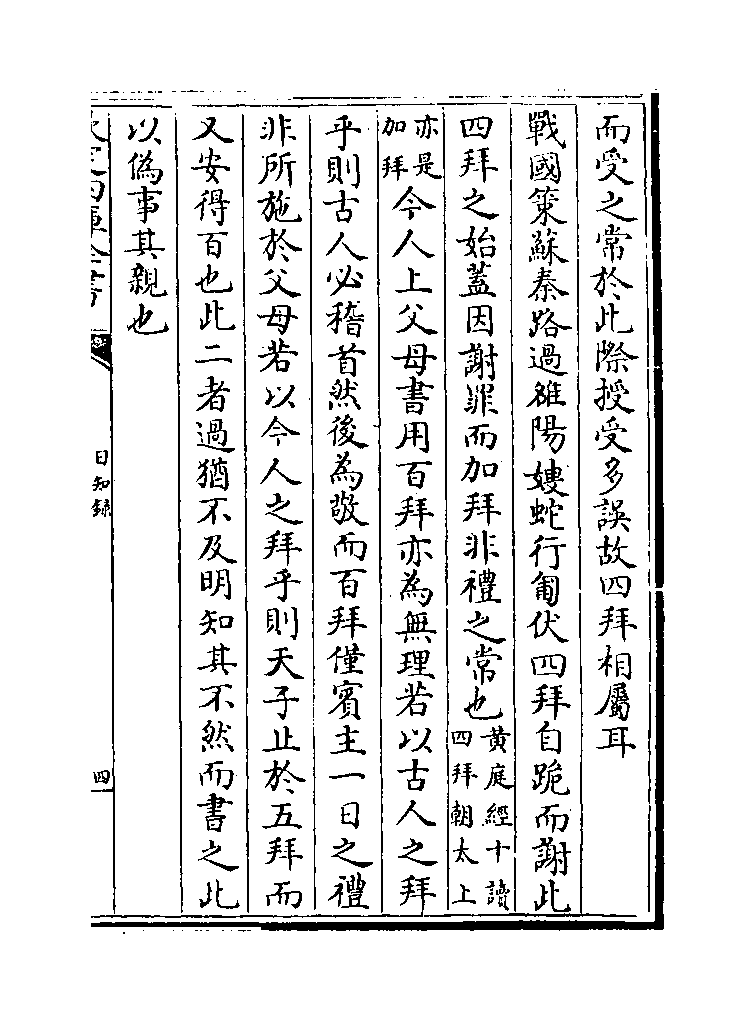 而受之常於此際授受多誤故四拜相屬耳
戰國策蘇秦路過雒陽嫂蛇行匍伏四拜自跪而謝此
四拜之始蓋因謝罪而加拜非禮之常也黄庭經十讀四拜朝太上
亦是加拜今人上父母書用百拜亦為無理若以古人之拜
乎則古人必稽首然後為敬而百拜僅賓主一日之禮
非所施於父母若以今人之拜乎則天子止於五拜而
又安得百也此二者過猶不及明知其不然而書之此
以偽事其親也
欽定四庫全書
日知錄
四